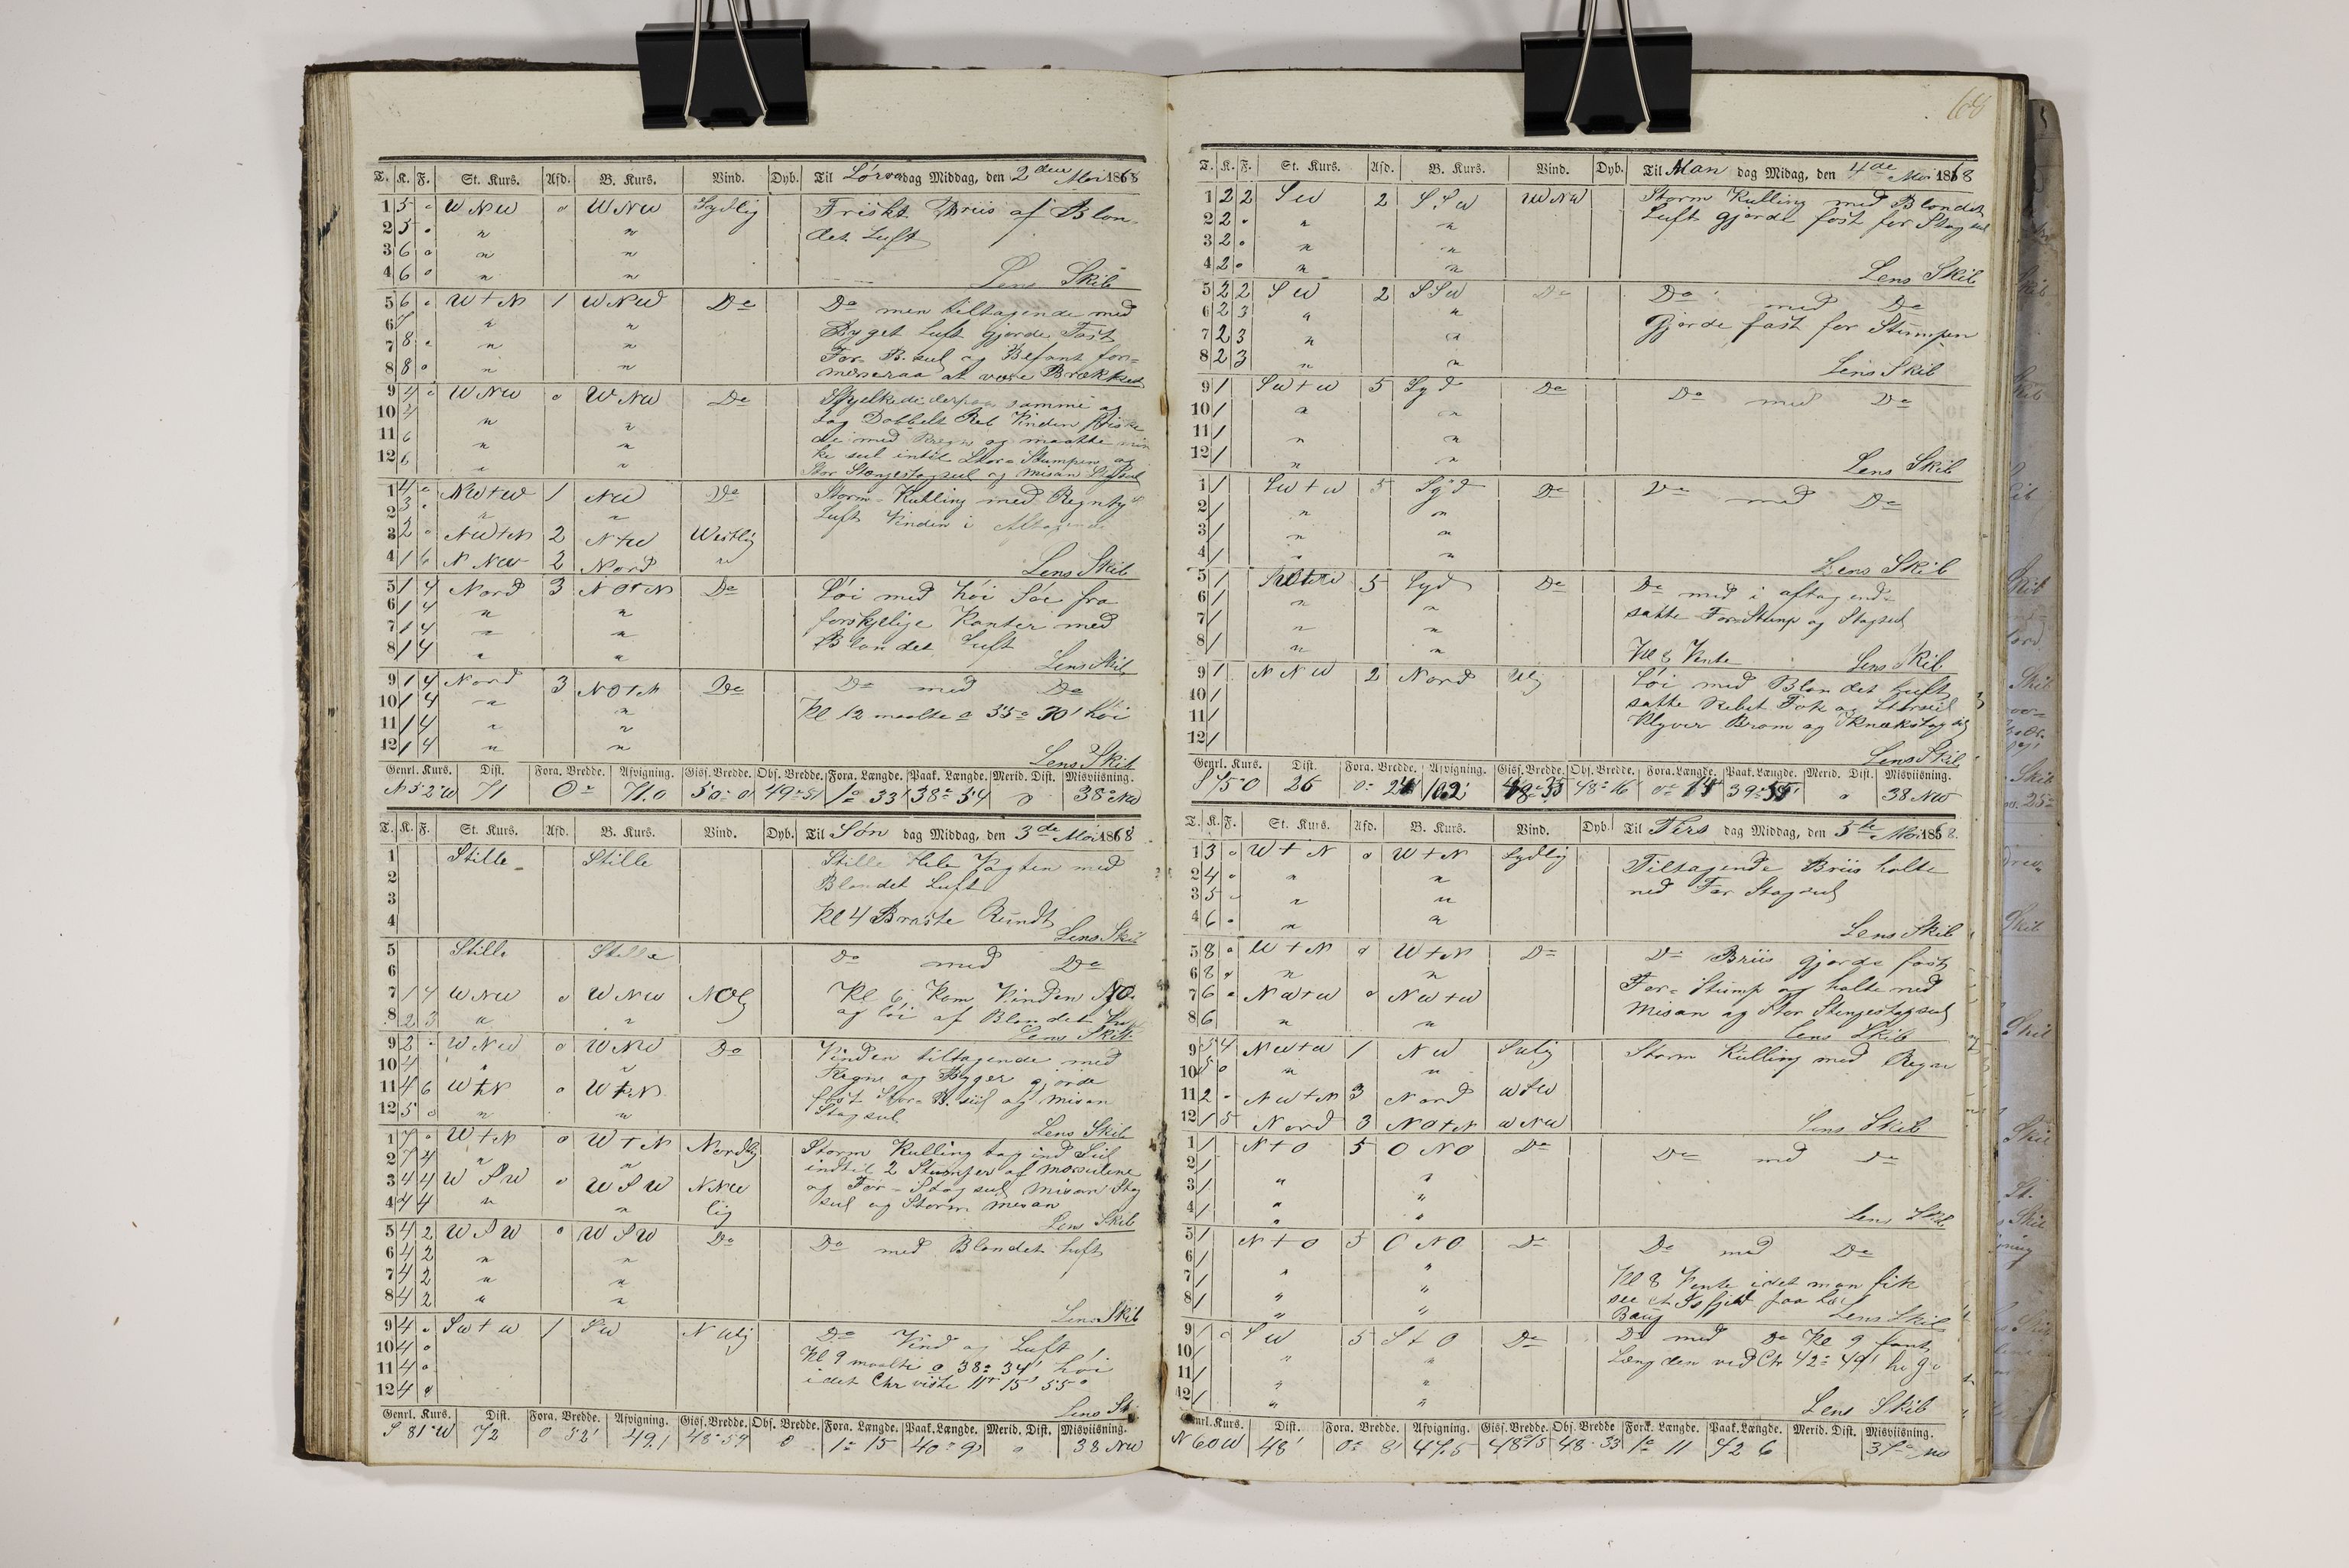 T. K. F. St. Kurs. Afd. B. Kurs. Vind. Dyb. Til Lørverdag Middag, den 2den Mai 1868
1 5 o WNW o WNW Sydlig Friskt Briis af Blon-
2 5 o " " det Luft
3 6 o " "
4 6 o " " Lens Skib
5 6 o W+N 1 WNW Do Do men tiltagende med
6 7 " " Byget Luft gjorde Fast
7 8 o " " For B. seil og Befant for=
8 8 o " " mersraa at være Brækket
9 4 o WNW o WNW Do Skjelkede derpaa samme og
10 4 " " tog Dobbelt Reb Vinden friske
11 6 " " de med Regn og maatte min
12 6 " " ke seil intil Store Stumpen og
Stor Stængestagseil og Misan Stagseil
1 4 o NW+W 1 NW Do Storm-Kulling med Regntyk
2 3 o " " Luft Vinden i Aftagende
3 2 o NW+N 2 N+W Westlig
4 1 6 NNW 2 Nord " Lens Skib
5 1 4 Nord 3 NO+N Do Løi med høi Søe fra
6 1 4 " " forskjelige Kanter med
7 1 4 " " Blandet Luft
8 1 4 " " Lens Skib
9 1 4 Nord 3 NO+N Do Do med Do
10 1 4 " " Kl 12 maalte o 55o 30' høi
11 1 4 " "
12 1 4 " " Lens Skib
Genrl. Kurs. Dist. Fora. Bredde. Afvigning. Gisf. Bredde. Obs. Bredde. Fora. Længde. Paak. Længde. Merid. Dist. Misviisning.
N 52o W 71 0o 71.0 50o 0 49o 51 1o 33' 38o 54 o 38o NW
T. K. F. St. Kurs. Afd. B. Kurs. Vind. Dyb. Til Søn dag Middag, den 3de Mai 1868
1 Stille Stille Stille Hele Vagten med
2 Blandet Luft
3
4 Kl 4 Braste Rundt Lens Skib
5 Stille Stille Do med Do
6
7 1 4 WNW o WNW NOlg Kl 6 Kom Vinden NO.
8 2 3 " " og løi af Blandet Luft
Lens Skib
9 2 WNW o WNW Do Vinden tiltagende med
10 4 " " Regn og Byger gjorde
11 4 6 W+N o W+N fast Stor B. seil og misan
12 5 o " " Stagseil Lens Skib
1 7 o W+N o W+N Nordlig Storm Kulling tog ind Seil
2 7 4 " " indtil 2 Stumper af Mærseilene
3 4 4 WSW o WSW NNW og For-Stagseil Misan Stag
4 4 4 " " lig seil og Storm misan
Lens Skib
5 4 2 WSW o WSW Do Do med Blandet Luft
6 4 2 " "
7 4 2 " "
8 4 2 " " Lens Skib
9 4 o SW+W 1 SW NWlj Do Vind og Luft
10 4 o Kl 9 maalte o 38o 34' høi
11 4 o idet Chr viste 11t 15' 55o
12 4 o Lens Sk
Genrl. Kurs. Dist. Fora. Bredde. Afvigning. Gisf. Bredde. Obs. Bredde. Fora. Længde. Paak. Længde. Merid. Dist. Misviisning.
S 81o W 72 0 52' 49.1 48o 59 o 1o 15 40o 9' o 38 NW
68
T. K. F. St. Kurs. Afd. B. Kurs. Vind. Dyb. Til Man dag Midag, den 4de Mai 1868
1 2 2 SW 2 SSW WNW Storm Kulling med Blandet
2 2 o " " Luft gjorde fast for Stagseil
3 2 o " "
4 2 o " " Lens Skib
5 2 2 SW 2 SSW Do Do med Do
6 2 3 " " gjorde fast for Stumpen
7 2 3 " "
8 2 3 " " Lens Skib
9 1 SW+W 5 Syd Do Do med Do
10 1 " "
11 1
12 1 " " Lens Skib
1 1 SW+W 5 Syd Do Do med Do
2 1 " "
3 1 " "
4 1 " " Lens Skib
5 1 5 Syd Do Do med i aftagende
6 1 " " satte For-Stump og Stagseil
7 1 " "
8 1 " " Kl 8 Vente Lens Skib
9 1 NNW 2 Nord Løi med Blandet luft
10 1 satte Rebet Fok og Storseil
11 1 Klyver Brom og
12 1 Lens Skib
Genrl. Kurs. Dist. Fora. Bredde. Afvigning. Gisf. Bredde. Obs. Bredde. Fora. Længde. Paak. Længde. Merid. Dist. Misviisning.
S 75o O 26 48o 16 o 38 NW
T. K. F. St. Kurs. Afd. B. Kurs. Vind. Dyb. Til Tirs dag Middag, den 5te Mai 1868.
1 3 o W+N o W+N Sydlig Tiltagende Briis halte
2 4 o " " ned For Stagseil
3 5 " "
4 6 o " " Lens Skib
5 8 o W+N o W+N Do Do Briis gjorde fast
6 8 o " " For-Stump og halte ned
7 6 o NW+W o NW+W Misan og Stor Stengestagseil
8 6 " " Lens Skib
9 5 4 NW+W 1 NW SWlig Storm Kulling med Regn
10 5 o " "
11 2 NW+N 3 Nord W+W
12 1 5 Nord 3 NO+N WNW Lens Skib
1 1 N+O 5 ONO Do Do med Do
2 1 "
3 1 " "
4 1 " " Lens Skib
5 1 N+O 5 ONO Do Do med Do
6 1 " "
7 1 " " Kl 8 Vente idet man fik
8 1 " " see et Isfjeld paa
Boug Lens Skib
9 1 o SW 5 S+O Do Do med Do Kl 9 fant
10 1 " " Længden ved Chr 42o 49'
11 1 " "
12 1 " " Lens Skib
Genrl. Kurs. Dist. Fora. Bredde. Afvigning. Gisf. Bredde. Obs. Bredde. Fork. Længde. Paak. Længde. Merid. Dist. Misviisning.
N 60 W 48' 0o 8' 47.5 48o 15 48o 33 1o 11 42 6